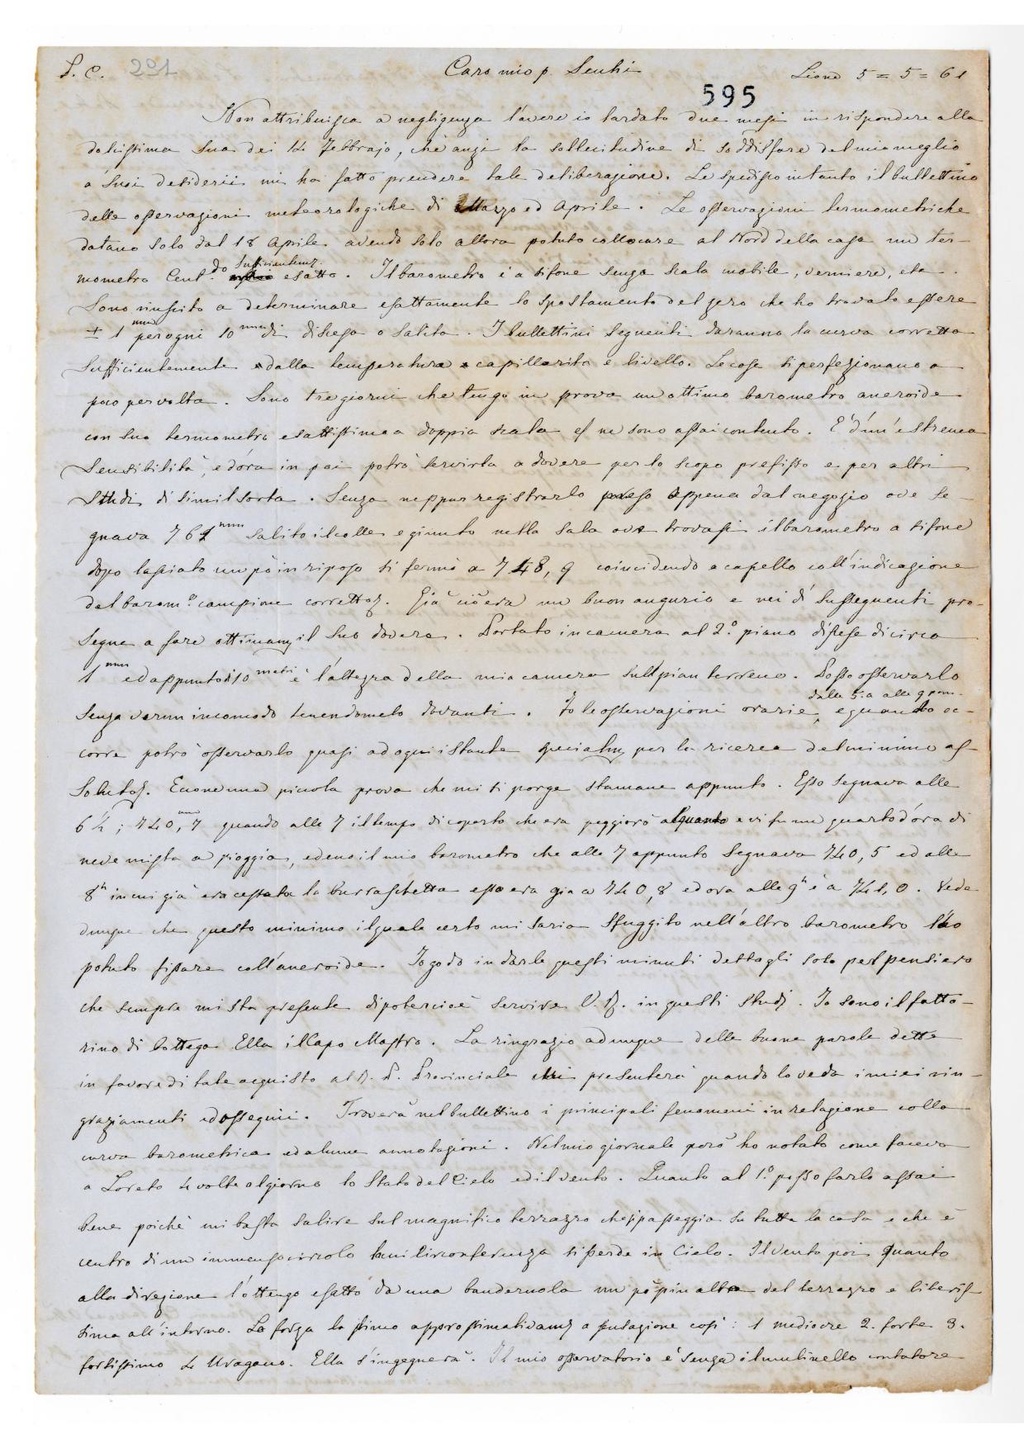 P. C. 201 Caro mio p. Secchi Lione 5 = 5 = 61
595
Non attribuisca a negligenza l'avere io tardato due mesi in rispondere alla
dolcissima Sua dei 14 Febbrajo, chè anzi la sollecitudine di soddisfare del mio meglio
a' Suoi desiderii mi ha fatto prendere tale deliberazione. Le spedisco intanto il bullettino
delle osservazioni meteorologiche di Marzo ed Aprile. Le osservazioni termometriche
datano solo dal 18 Aprile avendo solo allora potuto collocare al Nord della casa un ter-
mometro Cent.do sufficientemz. esatto. Il barometro è a sifone senza scala mobile, verniere, etc.
Sono riuscito a determinare esattamente lo spostamento del zero che ho trovato essere
± 1 mm per ogni 10 mm di discesa o salita. I bullettini seguenti daranno la curva corretta
sufficientemente dalla temperatura capillarità e livello. Le cose si perfezionano a
poco per volta. Sono tre giorni che tengo in prova un ottimo barometro aneroide
con suo termometro esattissimo a doppia scala e ne sono assai contento. È d'un'estrema
sensibilità, e d'ora in poi potrò servirla a dovere per lo scopo prefisso e per altri
studi di simil sorta. Senza neppur registrarlo preso appena dal negozio ove se-
gnava 761 mm salito il colle e giunto nella sala ove trovasi il barometro a sifone
dopo lasciato un pò in riposo si fermò a 748,9 coincidendo a capello coll'indicazione
del barom.o campione corretto. Già ciò era un buon augurio e nei dì susseguenti pro-
segue a fare ottimamz il suo dovere. Portato in camera al 2.o piano discese di circa
1 mm ed appunto di 10 metri è l'altezza della mia camera sul pian terreno. Posso osservarlo
senza verun incomodo tenendomelo davanti. Fo le osservazioni orarie dalle 5 a alle 9 pom., e quando oc-
corre potrò osservarlo quasi ad ogni istante specialmz per la ricerca del minimo as-
soluto. Eccone una piccola prova che mi si porge stamane appunto. Esso segnava alle
6 ½; 740,7 quando alle 7 il tempo di coperto che era peggiorò alquanto e vi fu un quarto d'ora di
neve mista a pioggia, ed ecco il mio barometro che alle 7 appunto segnava 740,5 ed alle
8h in cui già era cessata la burraschetta esso era già a 740,8 ed ora alle 9h è a 741,0. Veda
dunque che questo minimo il quale certo mi saria sfuggito nell'altro barometro l'ho
potuto fissare coll'aneroide. Io godo in darle questi minuti dettagli solo pel pensiero
che sempre mi sta presente di poter cioè servire V. R. in questi studj. Io sono il fatto-
rino di bottega Ella il Capo Mastro. La ringrazio adunque delle buone parole dette
in favore di tale acquisto al R. P. Provinciale cui presenterà quando lo veda i miei rin-
graziamenti ed ossequii. Troverà nel bullettino i principali fenomeni in relazione colla
curva barometrica ed alcune annotazioni. Nel mio giornale però ho notato come faceva
a Loreto 4 volte al giorno lo stato del Cielo ed il vento. Quanto al 1.o posso farlo assai
bene poichè mi basta salire sul magnifico terrazzo che spasseggia su tutta la casa e che è
centro di un immenso circolo la cui circonferenza si perde in Cielo. Il vento poi quanto
alla direzione l'ottengo esatto da una banderuola un pò più alta del terrazzo e liberis-
sima all'intorno. La forza la stimo approssimativamz a pulazione così: 1 mediocre 2. forte 3.
fortissimo 4 Uragano. Ella s'ingegnerà. Il mio osservatorio è senza il mulinello contatore